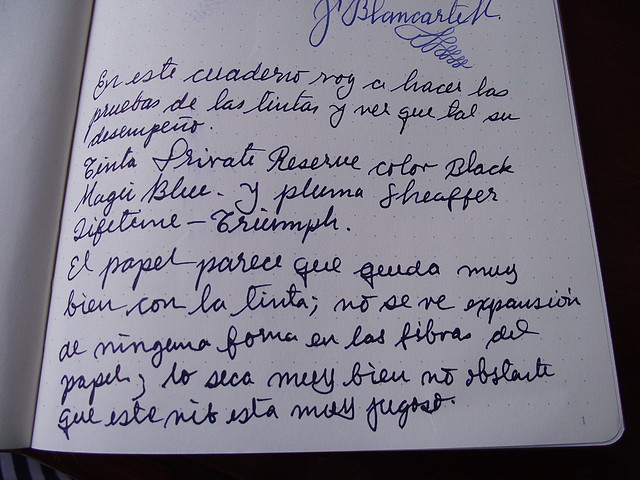 J Blancarte M.
En este cuaderno voy a hacer las
pruebas de las tintas y ver que tal su
desempeño.
Tinta Private Reserve color Black
Magic Blue. y pluma Sheaffer
Lifetime - Triumph.
El papel parece que queda muy
bien con la tinta; no se ve expansión
de ninguna forma en las fibras del
papel; lo seca muy bien no obstante
que este nib esta muy jugoso.
1